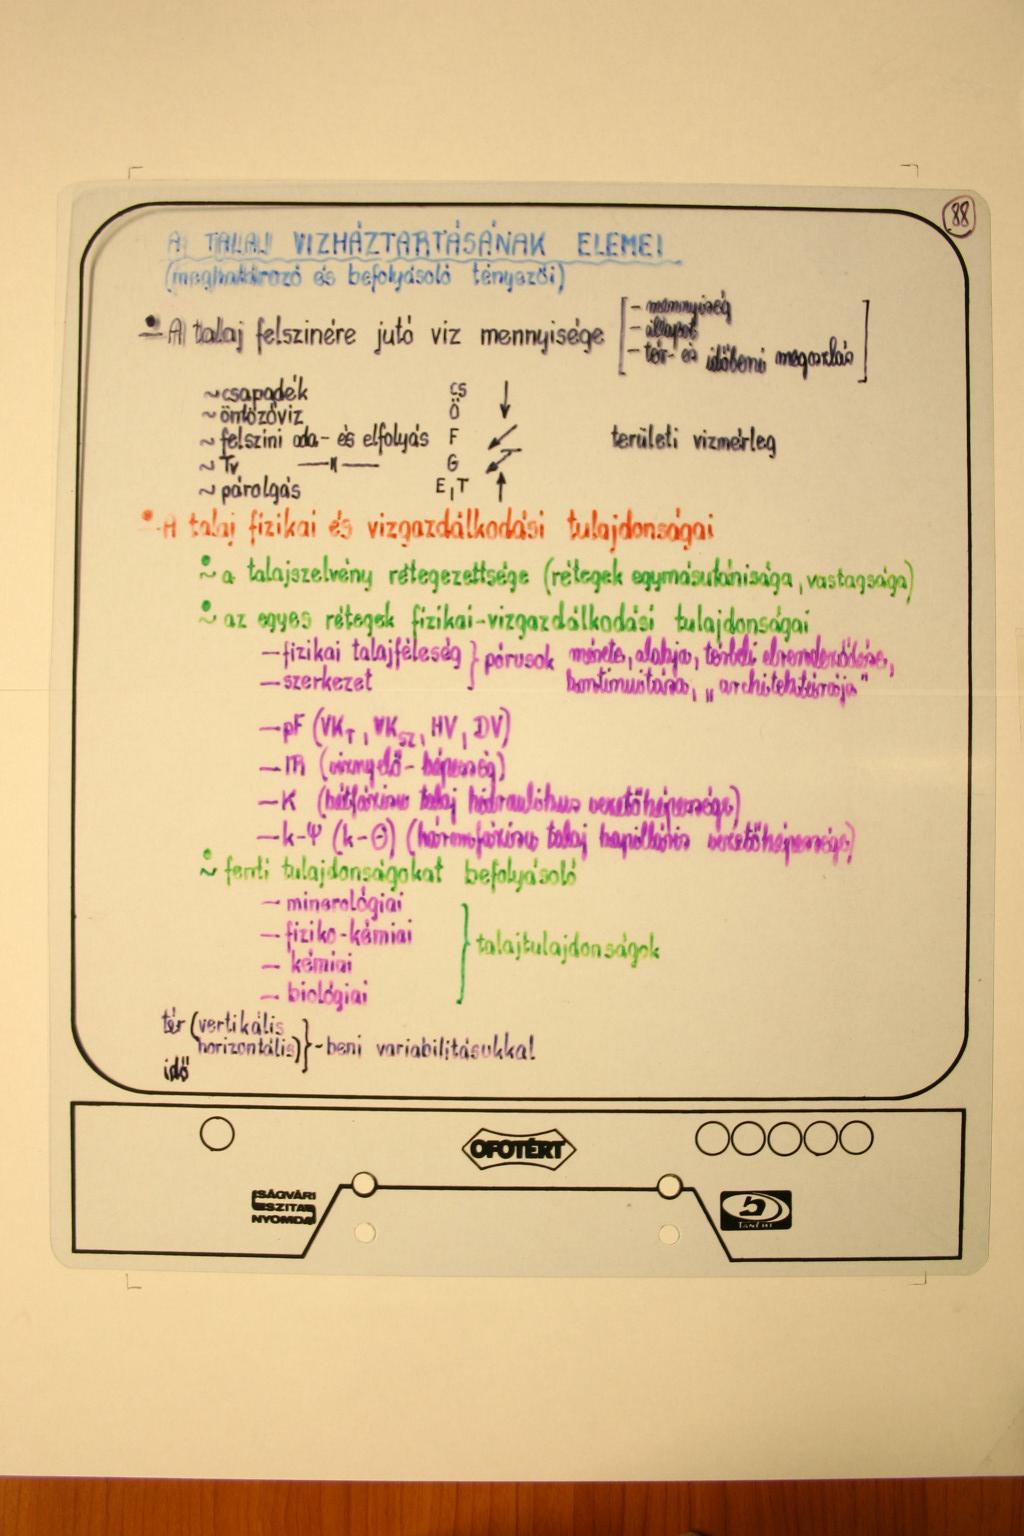 88
A TALAJ VIZHÁZTARTÁSÁNAK ELEMEI
(meghatározó és befolyásoló tényezői)
- A talaj felszinére jutó viz mennyisége [- mennyiség
- állapot
- tér- és időbeni megoszlás]
~ csapadék CS ↓
~ öntözőviz Ö
~ felszini oda- és elfolyás F területi vizmérleg
~ Tv —"— G
~ párolgás E, T ↑
- A talaj fizikai és vizgazdálkodási tulajdonságai
~ a talajszelvény rétegezettsége (rétegek egymásutánisága, vastagsága)
~ az egyes rétegek fizikai-vizgazdálkodási tulajdonságai
- fizikai talajféleség } pórusok mérete, alakja, térbeli elrendeződése,
- szerkezet kontinuitása, "architektúrája"
- pF (VKT, VKSZ, HV, DV)
- IR (viznyelő-képesség)
- K (kétfázisu talaj hidraulikus vezetőképessége)
- k-Ψ (k-Θ) (háromfázisu talaj kapilláris vezetőképessége)
~ fenti tulajdonságokat befolyásoló
- minerológiai
- fiziko-kémiai } talajtulajdonságok
- kémiai
- biológiai
tér (vertikális
horizontális) } - beni variabilitásukkal
idő
OFOTÉRT
SÁGVÁRI
SZITA
NYOMDA
TANÉRT